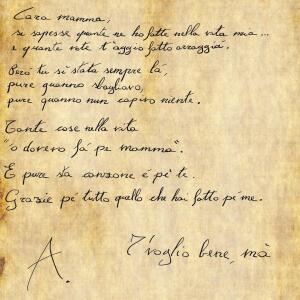 Cara mamma,
si sapesse quante ne ho fatte nella vita mia...
e quante vote t'aggio fatto arraggià.
Però tu si stata sempre là,
pure quanno sbagliavo,
pure quanno nun capivo niente.
Tante cose nella vita
"o dovero fà pe mamma".
E pure sta canzone è pe te.
Grazie pe tutto quello che hai fatto pe me.
T'voglio bene, mà
A.